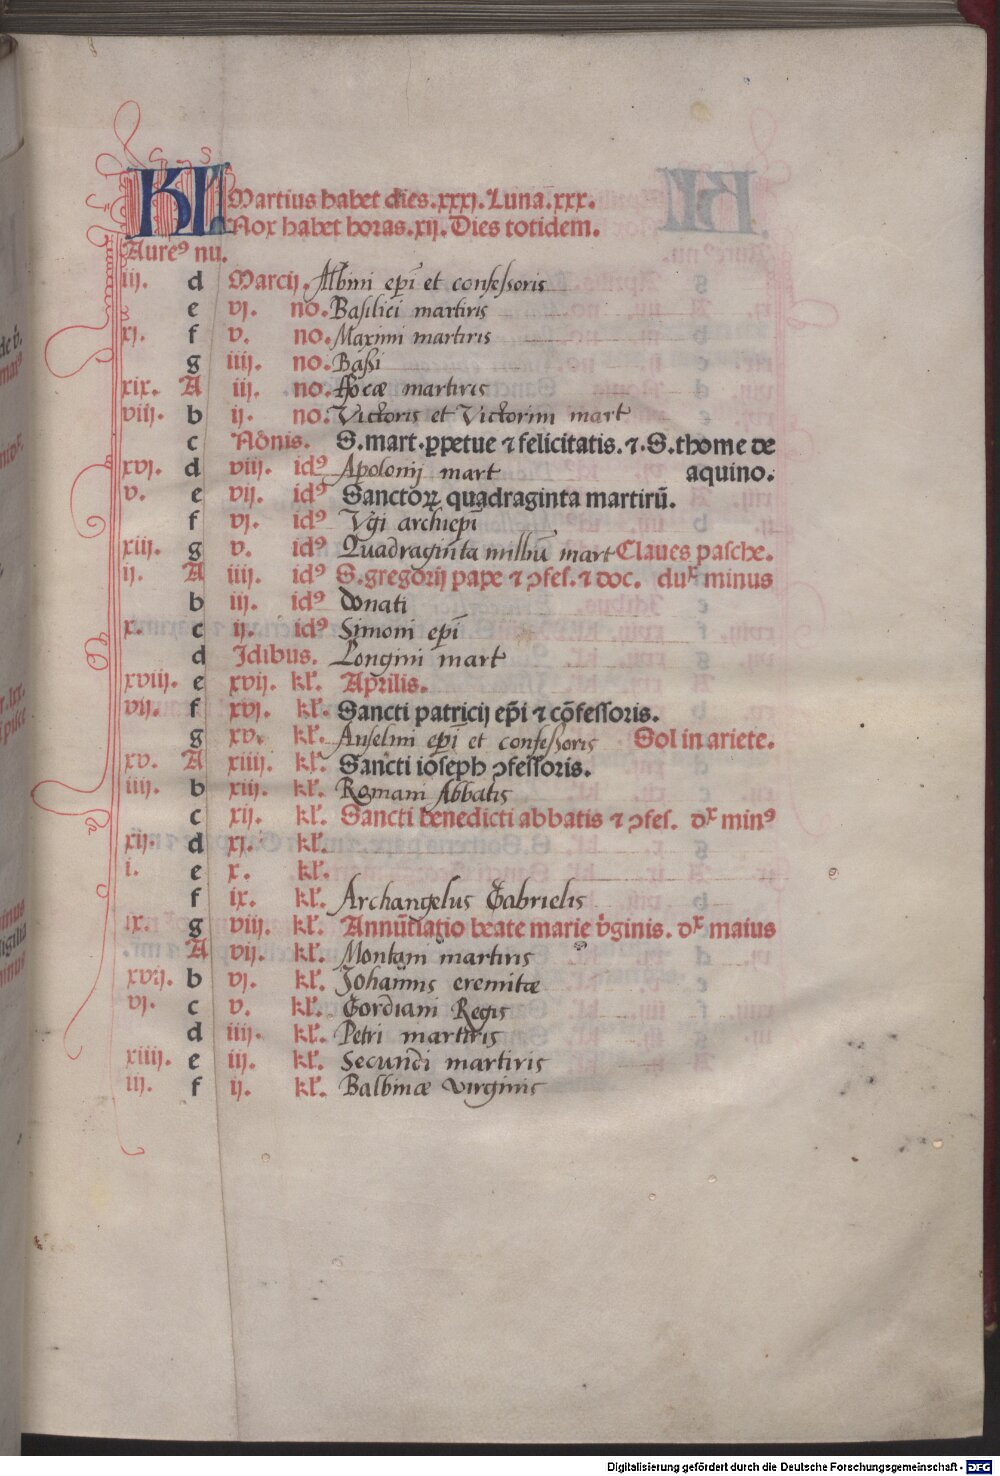 KL Martius habet dies .xxxj. Luna .xxx.
Nox habet horas .xij. Dies totidem.
Aureꝰ nu.
iij. d Marcij. Albini epi et confessoris
e vj. no. Basilici martiris
xj. f v. no. Maximi martiris
g iiij. no. Bassi
xix. A iij. no. ffocæ martiris
viij. b ij. no. Victoris et Victorini mart
c Nonis. S. mart. ꝑpetue ⁊ felicitatis. ⁊. S. thome de
xvj. d viij. idꝰ Apolonij mart aquino.
v. e vij. idꝰ Sanctoꝝ quadraginta martirū.
f vj. idꝰ Vgi archiepi
xiij. g v. idꝰ Quadraginta milbū mart Claues pasche.
ij. A iiij. idꝰ S. gregorij pape ⁊ ꝯfes. ⁊ doc. dux minus
b iij. idꝰ donati
x. c ij. idꝰ Simoni epi
d Idibus. Longini mart
xviij. e xvij. kl. Aprilis.
vij. f xvj. kl. Sancti patricij epi ⁊ cōfessoris.
g xv. kl. Anselmi epi et confessoris Sol in ariete.
xv. A xiiij. kl. Sancti ioseph ꝯfessoris.
iiij. b xiij. kl. Romani Abbatis
c xij. kl. Sancti benedicti abbatis ⁊ ꝯfes. dx minꝰ
xij. d xj. kl.
i. e x. kl.
f ix. kl. Archangelus Gabrielis
ix. g viij. kl. Annūtiatio beate marie vginis. dx maius
A vij. kl. Montani martiris
xvij. b vj. kl. Johannis eremitæ
vj. c v. kl. Gordiani Regis
d iiij. kl. Petri martiris
xiiij. e iij. kl. Secundi martiris
iij. f ij. kl. Balbinæ virginis
Digitalisierung gefördert durch die Deutsche Forschungsgemeinschaft - DFG